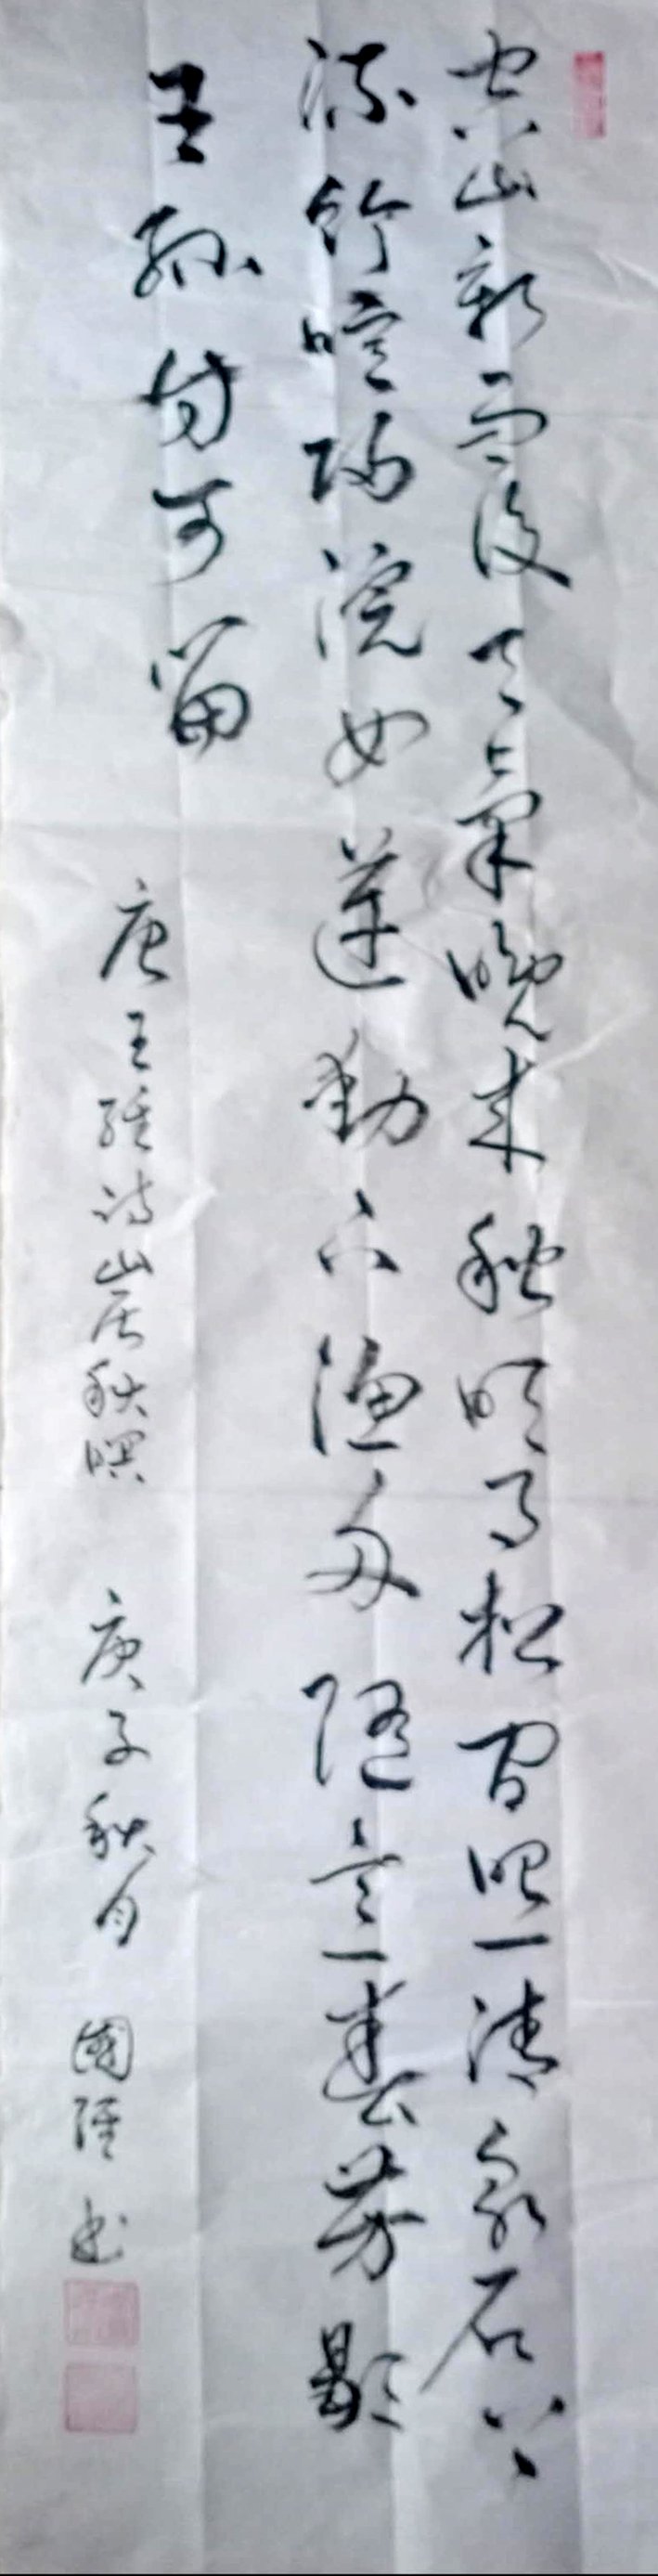 空山新雨後天氣晚來秋明月松間照清泉石上
流竹喧歸浣女蓮動下漁舟隨意春芳歇
王孫自可留
唐王維詩山居秋暝 庚子秋月 國 書